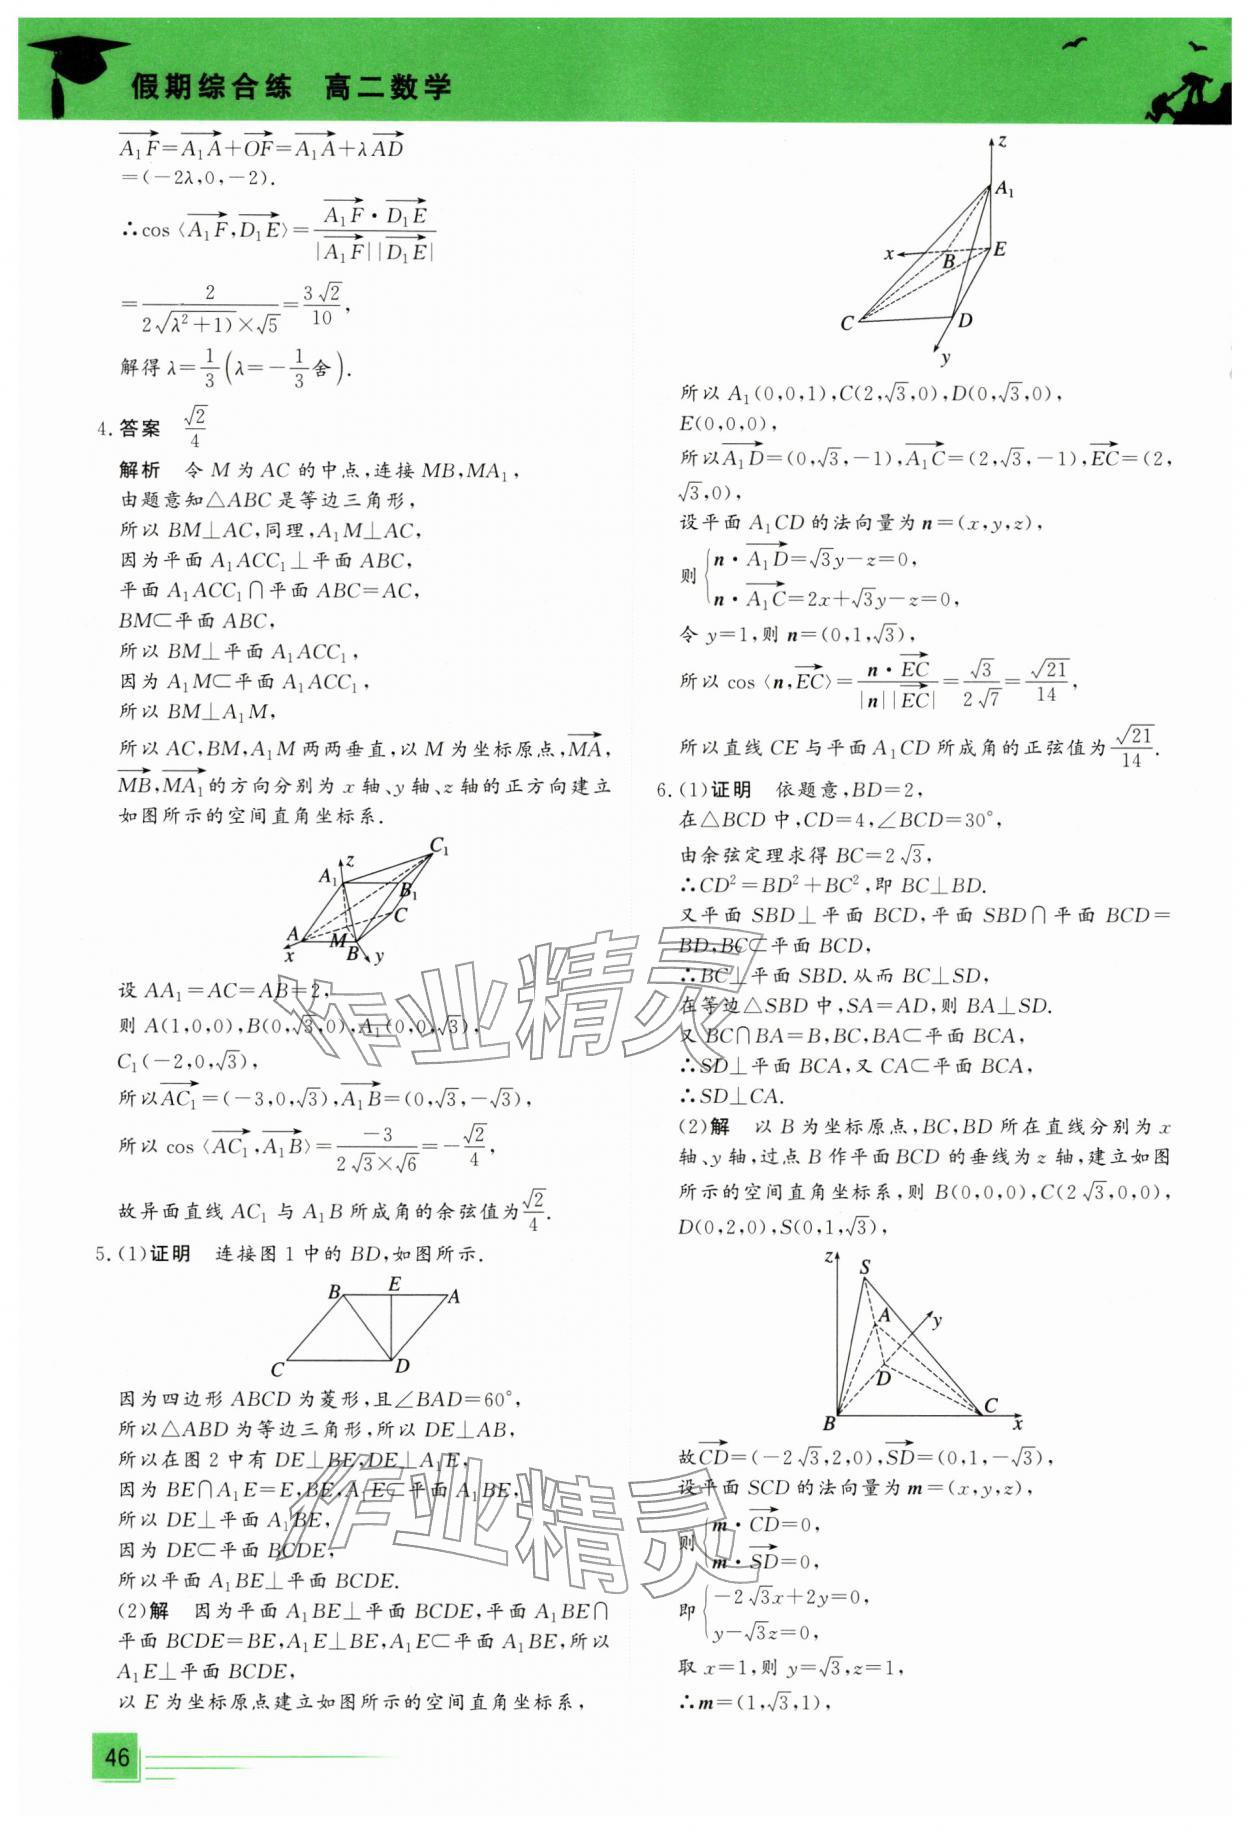 假期综合练 高二数学
$\overrightarrow{A_1F}=\overrightarrow{A_1A}+\overrightarrow{OF}=\overrightarrow{A_1A}+\lambda\overrightarrow{AD}$
=(-2λ,0,-2).
∴cos〈$\overrightarrow{A_1F},\overrightarrow{D_1E}$〉=$\frac{\overrightarrow{A_1F}·\overrightarrow{D_1E}}{|\overrightarrow{A_1F}||\overrightarrow{D_1E}|}$
=$\frac{2}{2\sqrt{λ^2+1)}×\sqrt{5}}=\frac{3\sqrt{2}}{10}$,
解得 λ=$\frac{1}{3}$(λ=-$\frac{1}{3}$舍).
4. 答案 $\frac{\sqrt{2}}{4}$
解析 令 M 为 AC 的中点,连接 MB,MA₁,
由题意知△ABC 是等边三角形,
所以 BM⊥AC,同理,A₁M⊥AC,
因为平面 A₁ACC₁⊥平面 ABC,
平面 A₁ACC₁∩平面 ABC=AC,
BM⊂平面 ABC,
所以 BM⊥平面 A₁ACC₁,
因为 A₁M⊂平面 A₁ACC₁,
所以 BM⊥A₁M,
所以 AC,BM,A₁M 两两垂直,以 M 为坐标原点,$\overrightarrow{MA}$,
$\overrightarrow{MB},\overrightarrow{MA_1}$的方向分别为 x 轴、y 轴、z 轴的正方向建立
如图所示的空间直角坐标系.
C₁
z
A₁
B₁
C
A
M
x
B
y
设 AA₁=AC=AB=2,
则 A(1,0,0),B(0,√3,0),A₁(0,0,√3),
C₁(-2,0,√3),
所以$\overrightarrow{AC_1}$=(-3,0,√3),$\overrightarrow{A_1B}$=(0,√3,-√3),
所以 cos〈$\overrightarrow{AC_1},\overrightarrow{A_1B}$〉=$\frac{-3}{2\sqrt{3}×\sqrt{6}}=-\frac{\sqrt{2}}{4}$,
故异面直线 AC₁ 与 A₁B 所成角的余弦值为$\frac{\sqrt{2}}{4}$.
5. (1)证明 连接图 1 中的 BD,如图所示.
B E A
C D
因为四边形 ABCD 为菱形,且∠BAD=60°,
所以△ABD 为等边三角形,所以 DE⊥AB,
所以在图 2 中有 DE⊥BE,DE⊥A₁E,
因为 BE∩A₁E=E,BE,A₁E⊂平面 A₁BE,
所以 DE⊥平面 A₁BE,
因为 DE⊂平面 BCDE,
所以平面 A₁BE⊥平面 BCDE.
(2)解 因为平面 A₁BE⊥平面 BCDE,平面 A₁BE∩
平面 BCDE=BE,A₁E⊥BE,A₁E⊂平面 A₁BE,所以
A₁E⊥平面 BCDE,
以 E 为坐标原点建立如图所示的空间直角坐标系,
z
A₁
x
B
E
C
D
y
所以 A₁(0,0,1),C(2,√3,0),D(0,√3,0),
E(0,0,0),
所以$\overrightarrow{A_1D}$=(0,√3,-1),$\overrightarrow{A_1C}$=(2,√3,-1),$\overrightarrow{EC}$=(2,
√3,0),
设平面 A₁CD 的法向量为 n=(x,y,z),
则 { n·$\overrightarrow{A_1D}$=√3y-z=0,
n·$\overrightarrow{A_1C}$=2x+√3y-z=0,
令 y=1,则 n=(0,1,√3),
所以 cos〈n,$\overrightarrow{EC}$〉=$\frac{n·\overrightarrow{EC}}{|n||\overrightarrow{EC}|}=\frac{\sqrt{3}}{2\sqrt{7}}=\frac{\sqrt{21}}{14}$,
所以直线 CE 与平面 A₁CD 所成角的正弦值为$\frac{\sqrt{21}}{14}$.
6. (1)证明 依题意,BD=2,
在△BCD 中,CD=4,∠BCD=30°,
由余弦定理求得 BC=2√3,
∴CD²=BD²+BC²,即 BC⊥BD.
又平面 SBD⊥平面 BCD,平面 SBD∩平面 BCD=
BD,BC⊂平面 BCD,
∴BC⊥平面 SBD.从而 BC⊥SD,
在等边△SBD 中,SA=AD,则 BA⊥SD.
又 BC∩BA=B,BC,BA⊂平面 BCA,
∴SD⊥平面 BCA,又 CA⊂平面 BCA,
∴SD⊥CA.
(2)解 以 B 为坐标原点,BC,BD 所在直线分别为 x
轴、y 轴,过点 B 作平面 BCD 的垂线为 z 轴,建立如图
所示的空间直角坐标系,则 B(0,0,0),C(2√3,0,0),
D(0,2,0),S(0,1,√3),
z
S
A
y
D
B
C
x
故$\overrightarrow{CD}$=(-2√3,2,0),$\overrightarrow{SD}$=(0,1,-√3),
设平面 SCD 的法向量为 m=(x,y,z),
则 { m·$\overrightarrow{CD}$=0,
m·$\overrightarrow{SD}$=0,
即 { -2√3x+2y=0,
y-√3z=0,
取 x=1,则 y=√3,z=1,
∴m=(1,√3,1),
46
作业精灵
作业精灵